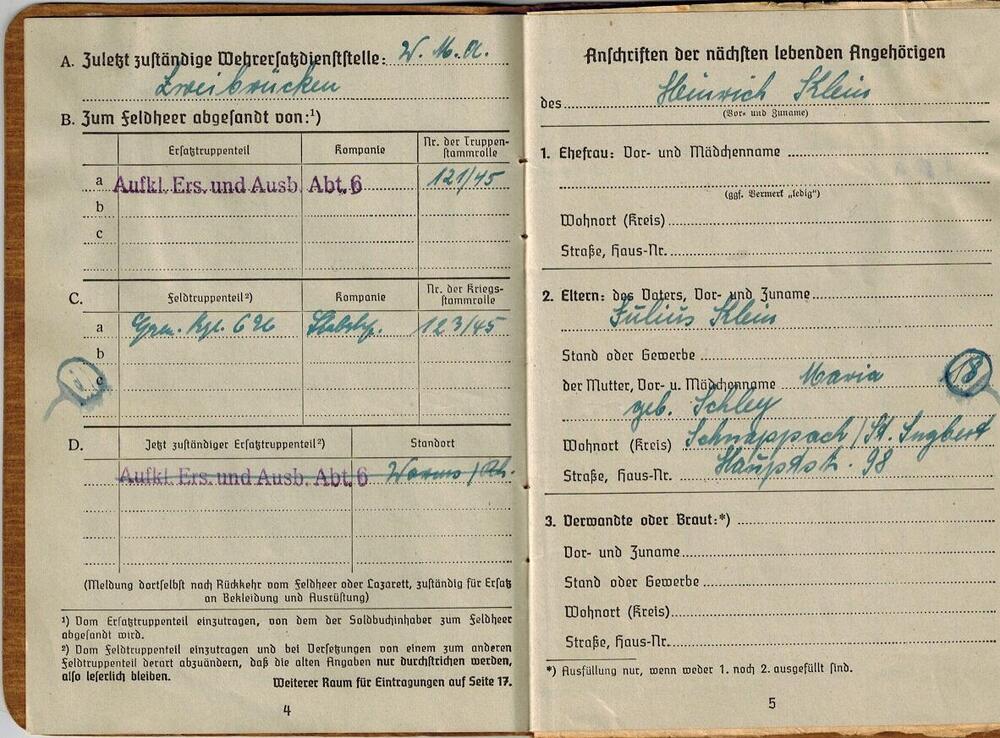 A. Zuletzt zuständige Wehrersatzdienststelle: W. M. A.
Zweibrücken
B. Zum Feldheer abgesandt von:¹)
Ersatztruppenteil Kompanie Nr. der Truppen-
stammrolle
a Aufkl. Ers. und Ausb. Abt. 6 121/45
b
c
C. Feldtruppenteil²) Kompanie Nr. der Kriegs-
stammrolle
a Gren. Rgt. 123/45
b
c
D. Jetzt zuständiger Ersatztruppenteil²) Standort
Aufkl. Ers. und Ausb. Abt. 6 Worms / Rh.
(Meldung dortselbst nach Rückkehr vom Feldheer oder Lazarett, zuständig für Ersatz
an Bekleidung und Ausrüstung)
¹) Vom Ersatztruppenteil einzutragen, von dem der Soldbuchinhaber zum Feldheer
abgesandt wird.
²) Vom Feldtruppenteil einzutragen und bei Versetzungen von einem zum anderen
Feldtruppenteil derart abzuändern, daß die alten Angaben nur durchstrichen werden,
also leserlich bleiben.
Weiterer Raum für Eintragungen auf Seite 17.
4
Anschriften der nächsten lebenden Angehörigen
des Heinrich Klein
(Vor- und Zuname)
1. Ehefrau: Vor- und Mädchenname
(ggf. Vermerk „ledig")
Wohnort (Kreis)
Straße, Haus-Nr.
2. Eltern: des Vaters, Vor- und Zuname
Julius Klein
Stand oder Gewerbe
der Mutter, Vor- u. Mädchenname Maria 18
geb. Schley
Wohnort (Kreis) Schnappach / St. Ingbert
Straße, Haus-Nr. Hauptst. 98
3. Verwandte oder Braut:*)
Vor- und Zuname
Stand oder Gewerbe
Wohnort (Kreis)
Straße, Haus-Nr.
*) Ausfüllung nur, wenn weder 1. noch 2. ausgefüllt sind.
5